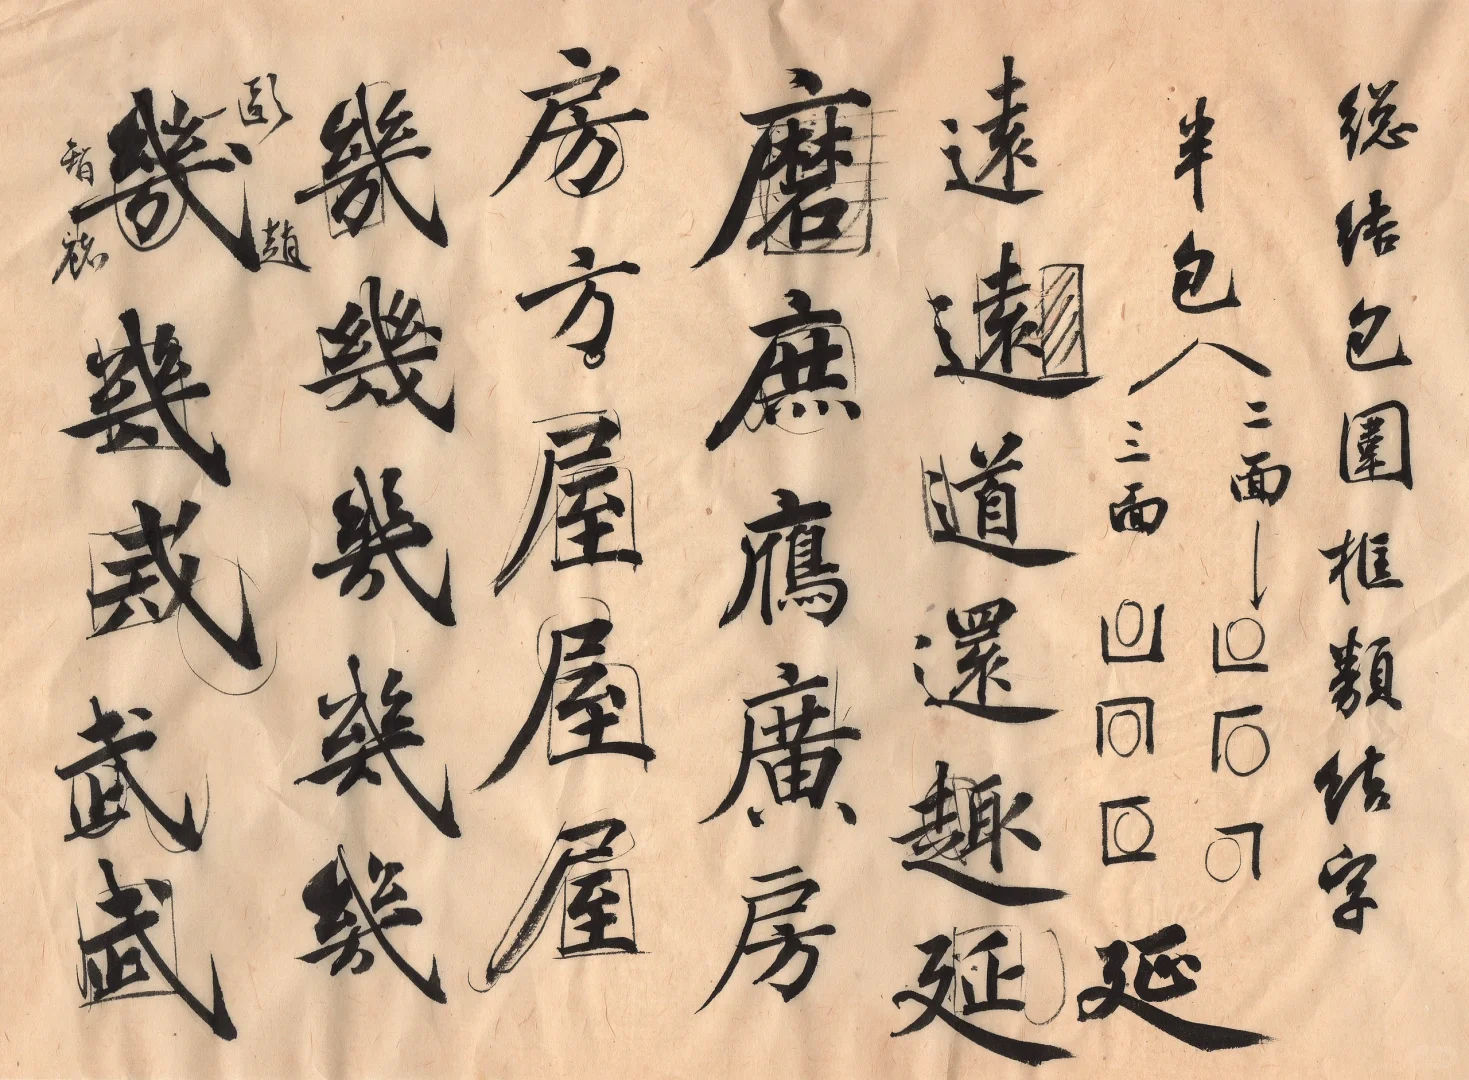 総结包圍框類结字
半包
二面
三面
延
遠遠道還趣延
磨庶鴈廣房
房方屋屋屋
幾幾幾幾幾
幾幾武武武
彭
智
趙
褚